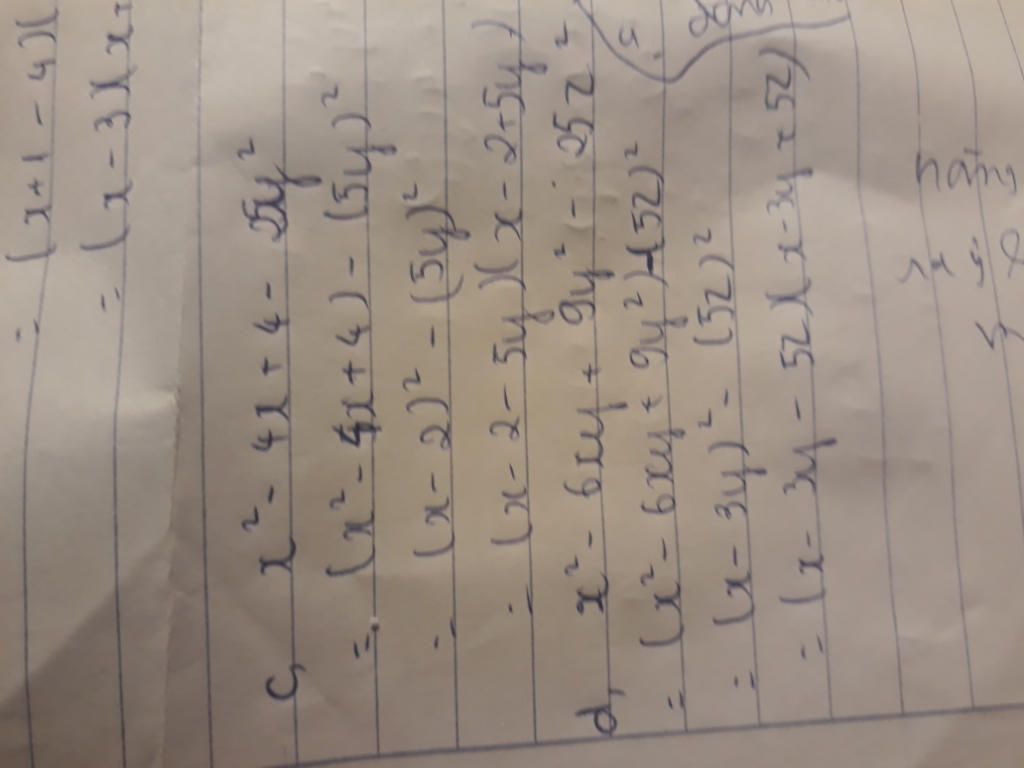 = (x+1-4)(
= (x-3)(x+
c, x² - 4x + 4 - 25y²
= (x² - 4x + 4) - (5y)²
= (x-2)² - (5y)²
= (x-2-5y)(x-2+5y)
d, x² - 6xy + 9y² - 25z²
= (x² - 6xy + 9y²) - (5z)²
= (x-3y)² - (5z)²
= (x-3y-5z)(x-3y+5z)